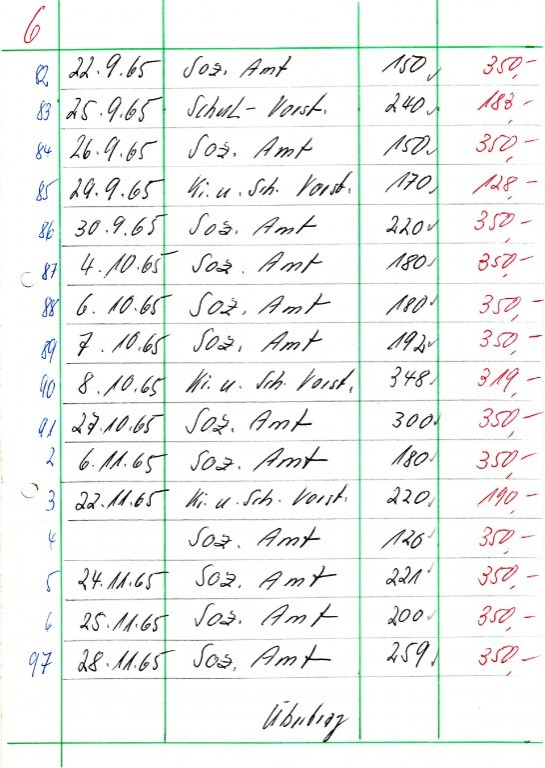 6
82 22.9.65 Soz. Amt 150 350,-
83 25.9.65 Schul-Vorst. 240 183,-
84 26.9.65 Soz. Amt 150 350,-
85 29.9.65 Ki. u. Sch. Vorst. 170 128,-
86 30.9.65 Soz. Amt 220 350,-
87 4.10.65 Soz. Amt 180 350,-
88 6.10.65 Soz. Amt 180 350,-
89 7.10.65 Soz. Amt 192 350,-
90 8.10.65 Ki. u. Sch. Vorst. 348 319,-
91 27.10.65 Soz. Amt 300 350,-
2 6.11.65 Soz. Amt 180 350,-
3 22.11.65 Ki. u. Sch. Vorst. 220 190,-
4 Soz. Amt 126 350,-
5 24.11.65 Soz. Amt 221 350,-
6 25.11.65 Soz. Amt 200 350,-
97 28.11.65 Soz. Amt 259 350,-
Übertrag